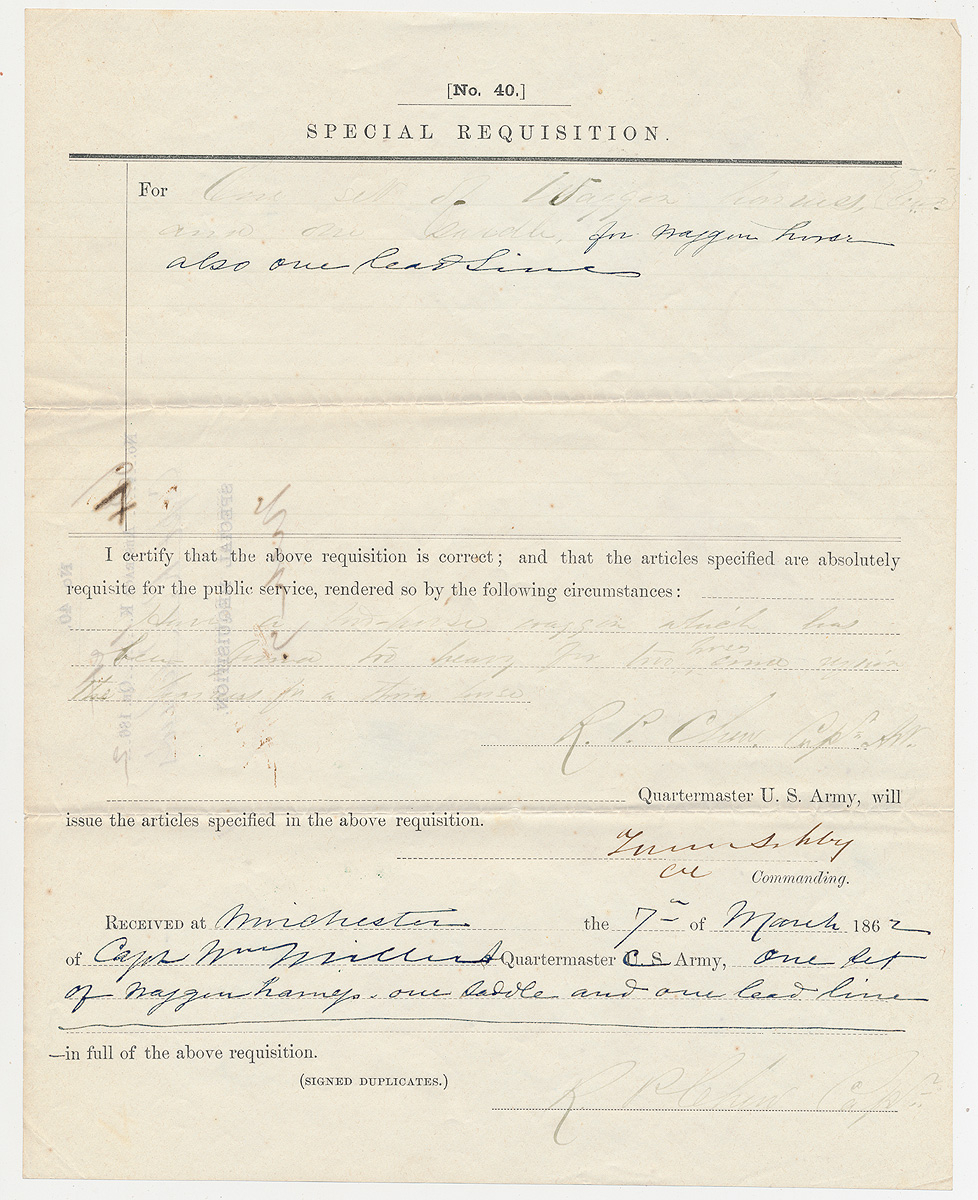 [No. 40.]
SPECIAL REQUISITION.
For One set of Waggon harness,
and one Saddle, for waggon horse
also one lead Line
I certify that the above requisition is correct; and that the articles specified are absolutely
requisite for the public service, rendered so by the following circumstances:
Have a two-horse waggon which has
been found too heavy for two horses
the harness for a third horse
R. P. Chew. Capt
Quartermaster U. S. Army, will
issue the articles specified in the above requisition.
Turner Ashby
Col Commanding.
RECEIVED at Winchester the 7th of March 1862
of Capt Wm Miller A Quartermaster C. S. Army, One set
of waggon harness. one saddle and one lead line
in full of the above requisition.
(SIGNED DUPLICATES.)
R. P. Chew Capt